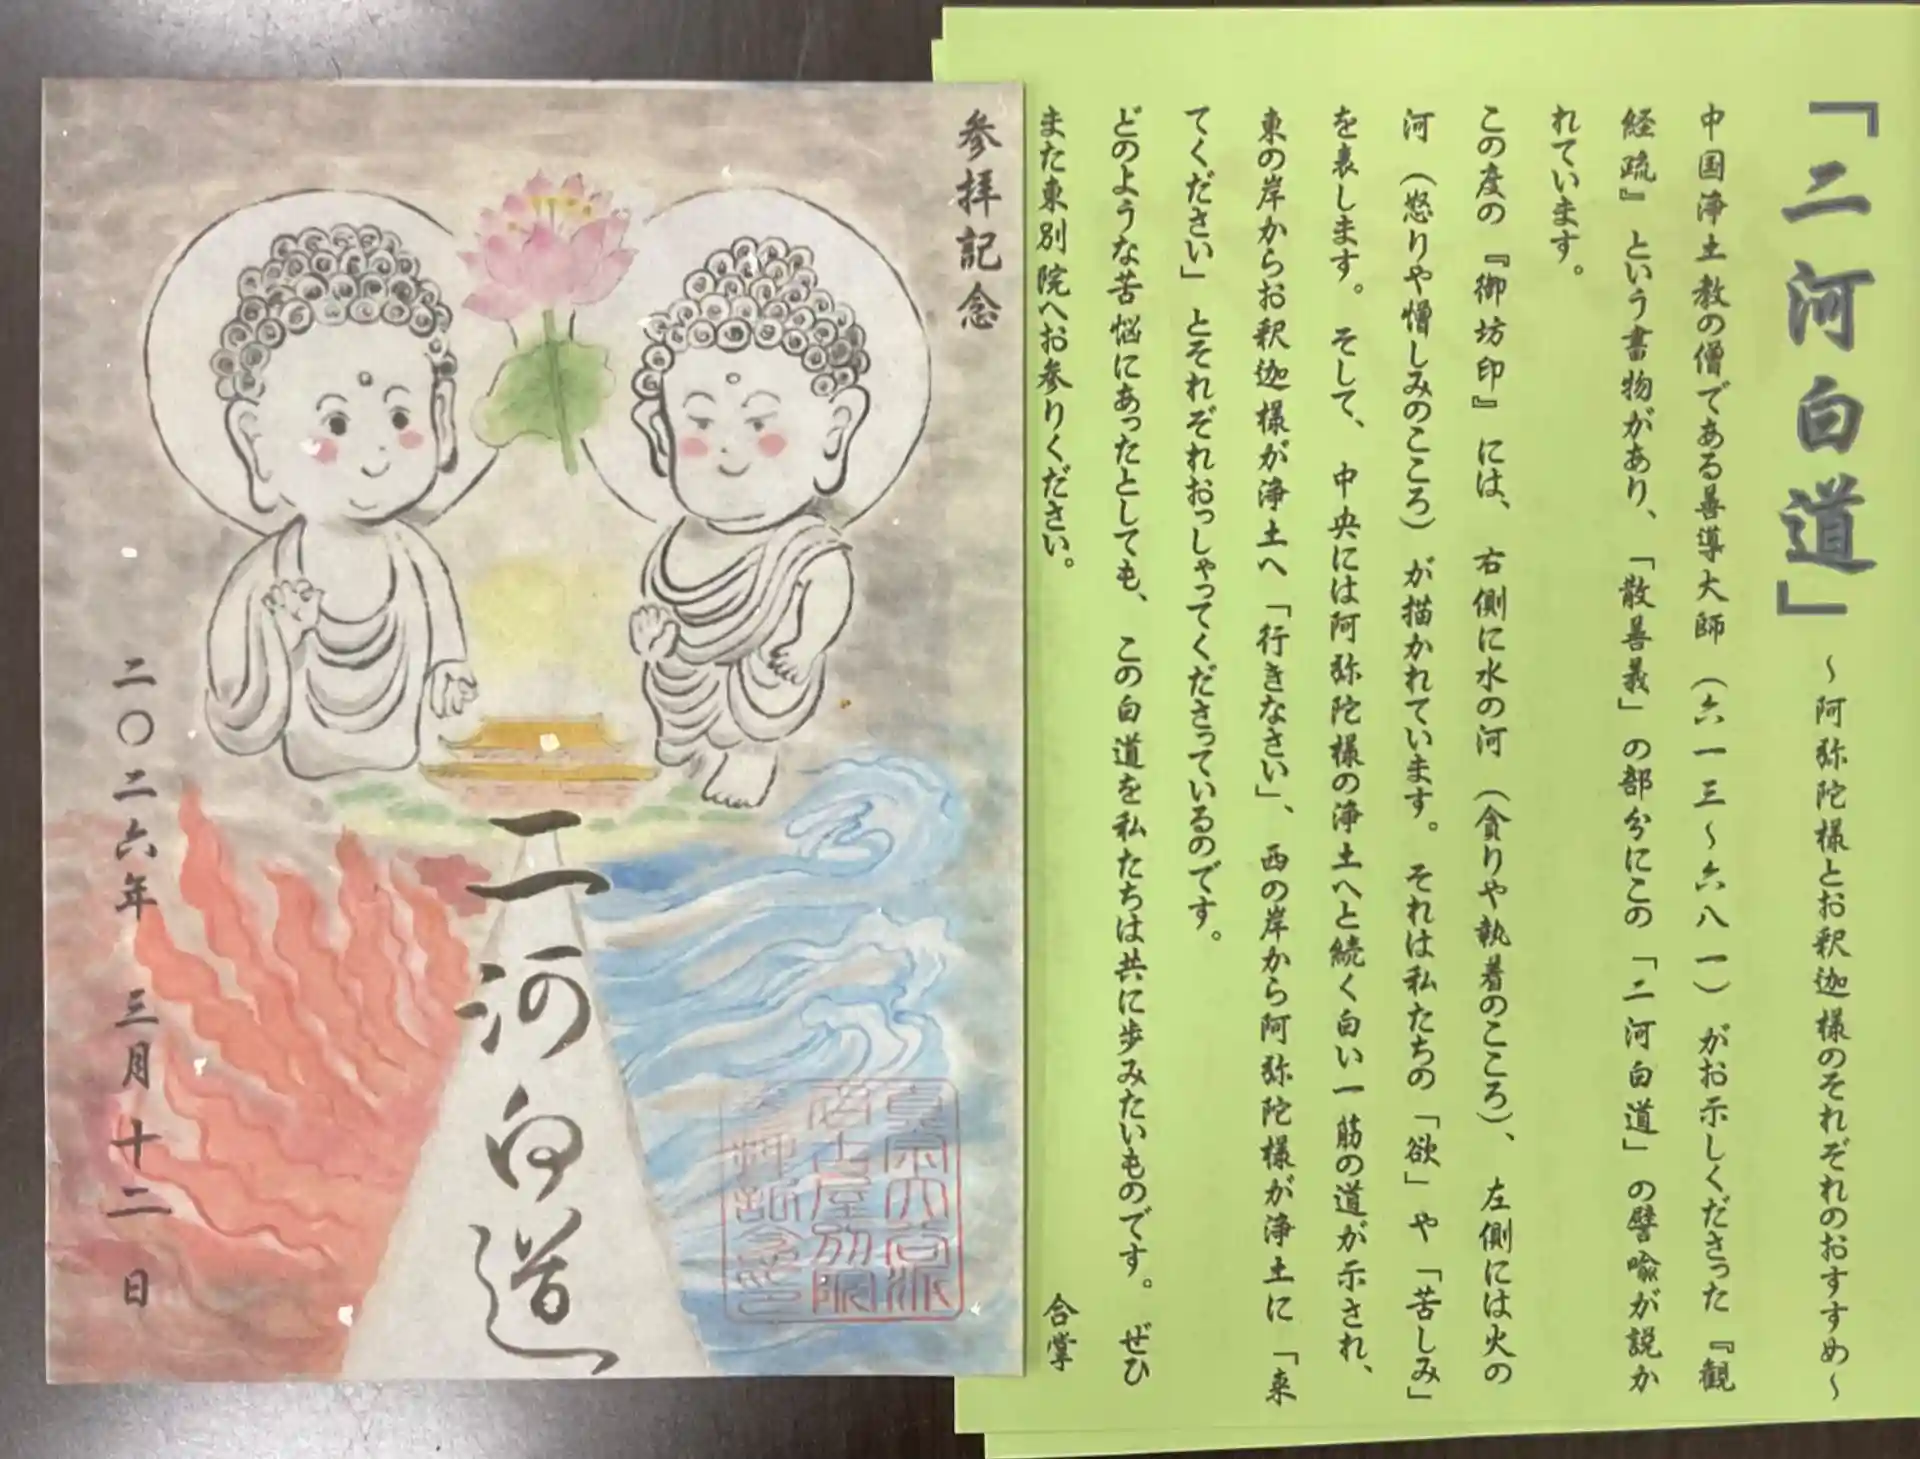 「二河白道」～阿弥陀様とお釈迦様のそれぞれのおすすめ～
中国浄土教の僧である善導大師（六一三～六八一）がお示しくださった『観
経疏』という書物があり、「散善義」の部分にこの「二河白道」の譬喩が説か
れています。
この度の『御坊印』には、右側に水の河（貪りや執着のこころ）、左側には火の
河（怒りや憎しみのこころ）が描かれています。それは私たちの「欲」や「苦しみ」
を表します。そして、中央には阿弥陀様の浄土へと続く白い一筋の道が示され、
東の岸からお釈迦様が浄土へ「行きなさい」、西の岸から阿弥陀様が浄土に「来
てください」とそれぞれおっしゃってくださっているのです。
どのような苦悩にあったとしても、この白道を私たちは共に歩みたいものです。ぜひ
また東別院へお参りください。
合掌
参拝記念
二河白道
二〇二六年三月十二日
真宗大谷派
名古屋別院